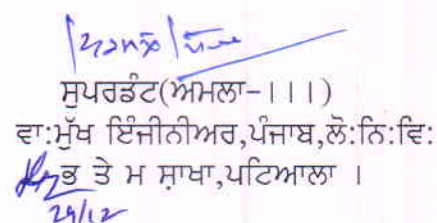 ਸੁਪਰਡੰਟ(ਅਮਲਾ-।।।)
ਵਾ:ਮੁੱਖ ਇੰਜੀਨੀਅਰ,ਪੰਜਾਬ,ਲੋ:ਨਿ:ਵਿ:
ਭ ਤੇ ਮ ਸ਼ਾਖਾ,ਪਟਿਆਲਾ ।
29/12